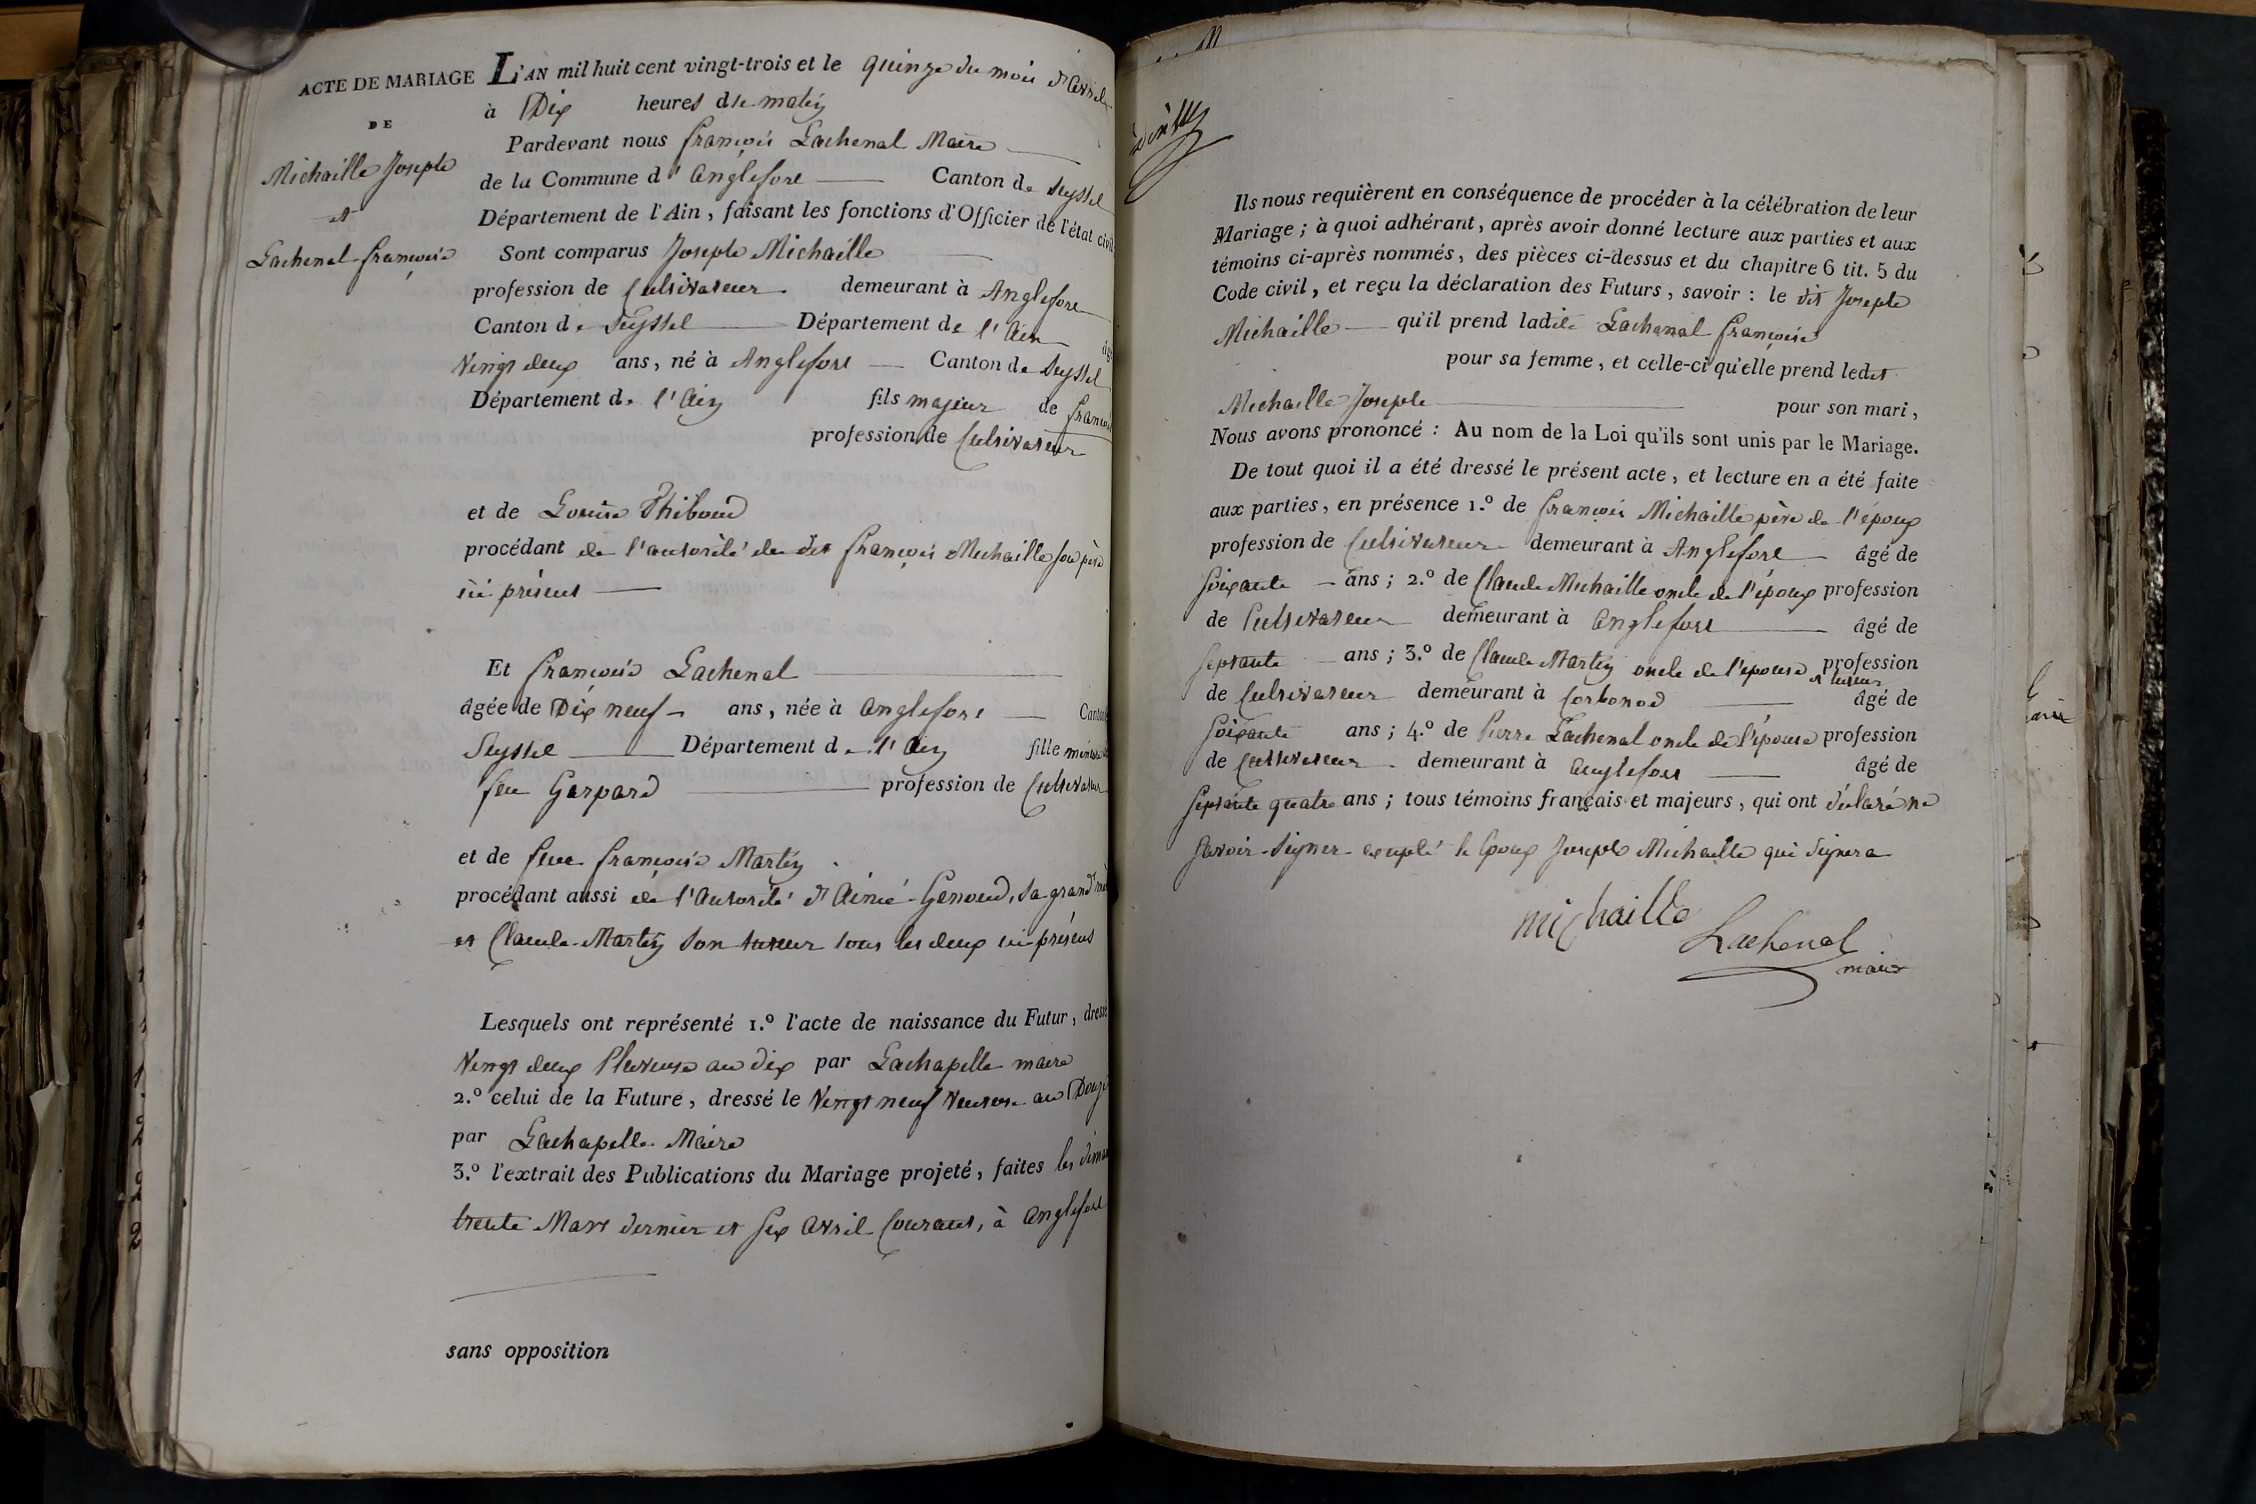 ACTE DE MARIAGE
DE
Michaille Joseph
et
Lachenal françoise
L'AN mil huit cent vingt-trois et le quinze du mois d'avril
à Dix heures du matin
Pardevant nous françois Lachenal Maire
de la Commune d'Anglefort Canton de Seyssel
Département de l'Ain, faisant les fonctions d'Officier de l'état civil
Sont comparus Joseph Michaille
profession de Cultivateur demeurant à Anglefort
Canton de Seyssel Département de l'Ain âgé
Vingt deux ans, né à Anglefort Canton de Seyssel
Département de l'Ain fils majeur de françois
profession de Cultivateur
et de Louise Thiboud
procédant de l'autorité du dit françois Michaille son père
ici présent
Et françoise Lachenal
âgée de Dix neuf ans, née à Anglefort Canton
Seyssel Département de l'Ain fille mineure
feu Gaspard profession de Cultivateur
et de feue françoise Martin
procédant aussi de l'autorité d'Aimé Genoud, sa grand'mère
et Claude Martin son tuteur tous les deux ici présens
Lesquels ont représenté 1.º l'acte de naissance du Futur, dressé
Vingt deux Pluviose an dix par Lachapelle maire
2.º celui de la Future, dressé le Vingt neuf Ventose an Douze
par Lachapelle Maire
3.º l'extrait des Publications du Mariage projeté, faites les diman
trente Mars dernier et six Avril Courant, à Anglefort
sans opposition
Ils nous requièrent en conséquence de procéder à la célébration de leur
Mariage; à quoi adhérant, après avoir donné lecture aux parties et aux
témoins ci-après nommés, des pièces ci-dessus et du chapitre 6 tit. 5 du
Code civil, et reçu la déclaration des Futurs, savoir: le dit Joseph
Michaille qu'il prend ladite Lachenal françoise
pour sa femme, et celle-ci qu'elle prend ledit
Michaille Joseph pour son mari,
Nous avons prononcé: Au nom de la Loi qu'ils sont unis par le Mariage.
De tout quoi il a été dressé le présent acte, et lecture en a été faite
aux parties, en présence 1.º de françois Michaille père de l'époux
profession de Cultivateur demeurant à Anglefort âgé de
soixante ans; 2.º de Claude Michaille oncle de l'époux profession
de Cultivateur demeurant à Anglefort âgé de
septante ans; 3.º de Claude Martin oncle de l'épouse profession
et tuteur
de Cultivateur demeurant à Corbonod âgé de
soixante ans; 4.º de Pierre Lachenal oncle de l'épouse profession
de Cultivateur demeurant à Anglefort âgé de
septante quatre ans; tous témoins français et majeurs, qui ont déclaré ne
savoir signer excepté le Epoux Joseph Michaille qui signera
michaille
Lachenal
maire